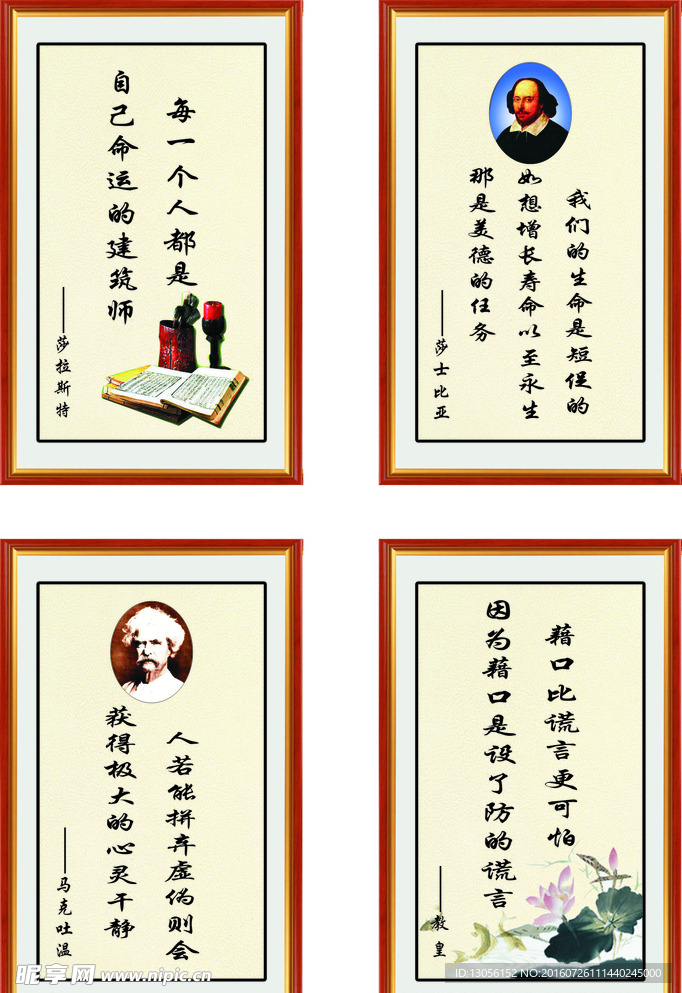 每一个人都是
自己命运的建筑师
——莎拉斯特
我们的生命是短促的
如想增长寿命以至永生
那是美德的任务
——莎士比亚
人若能拼弃虚伪则会
获得极大的心灵干静
——马克吐温
藉口比谎言更可怕
因为藉口是设了防的谎言
——教皇
昵享网 www.nipic.cn
ID:13056152 NO:20160726111440245000